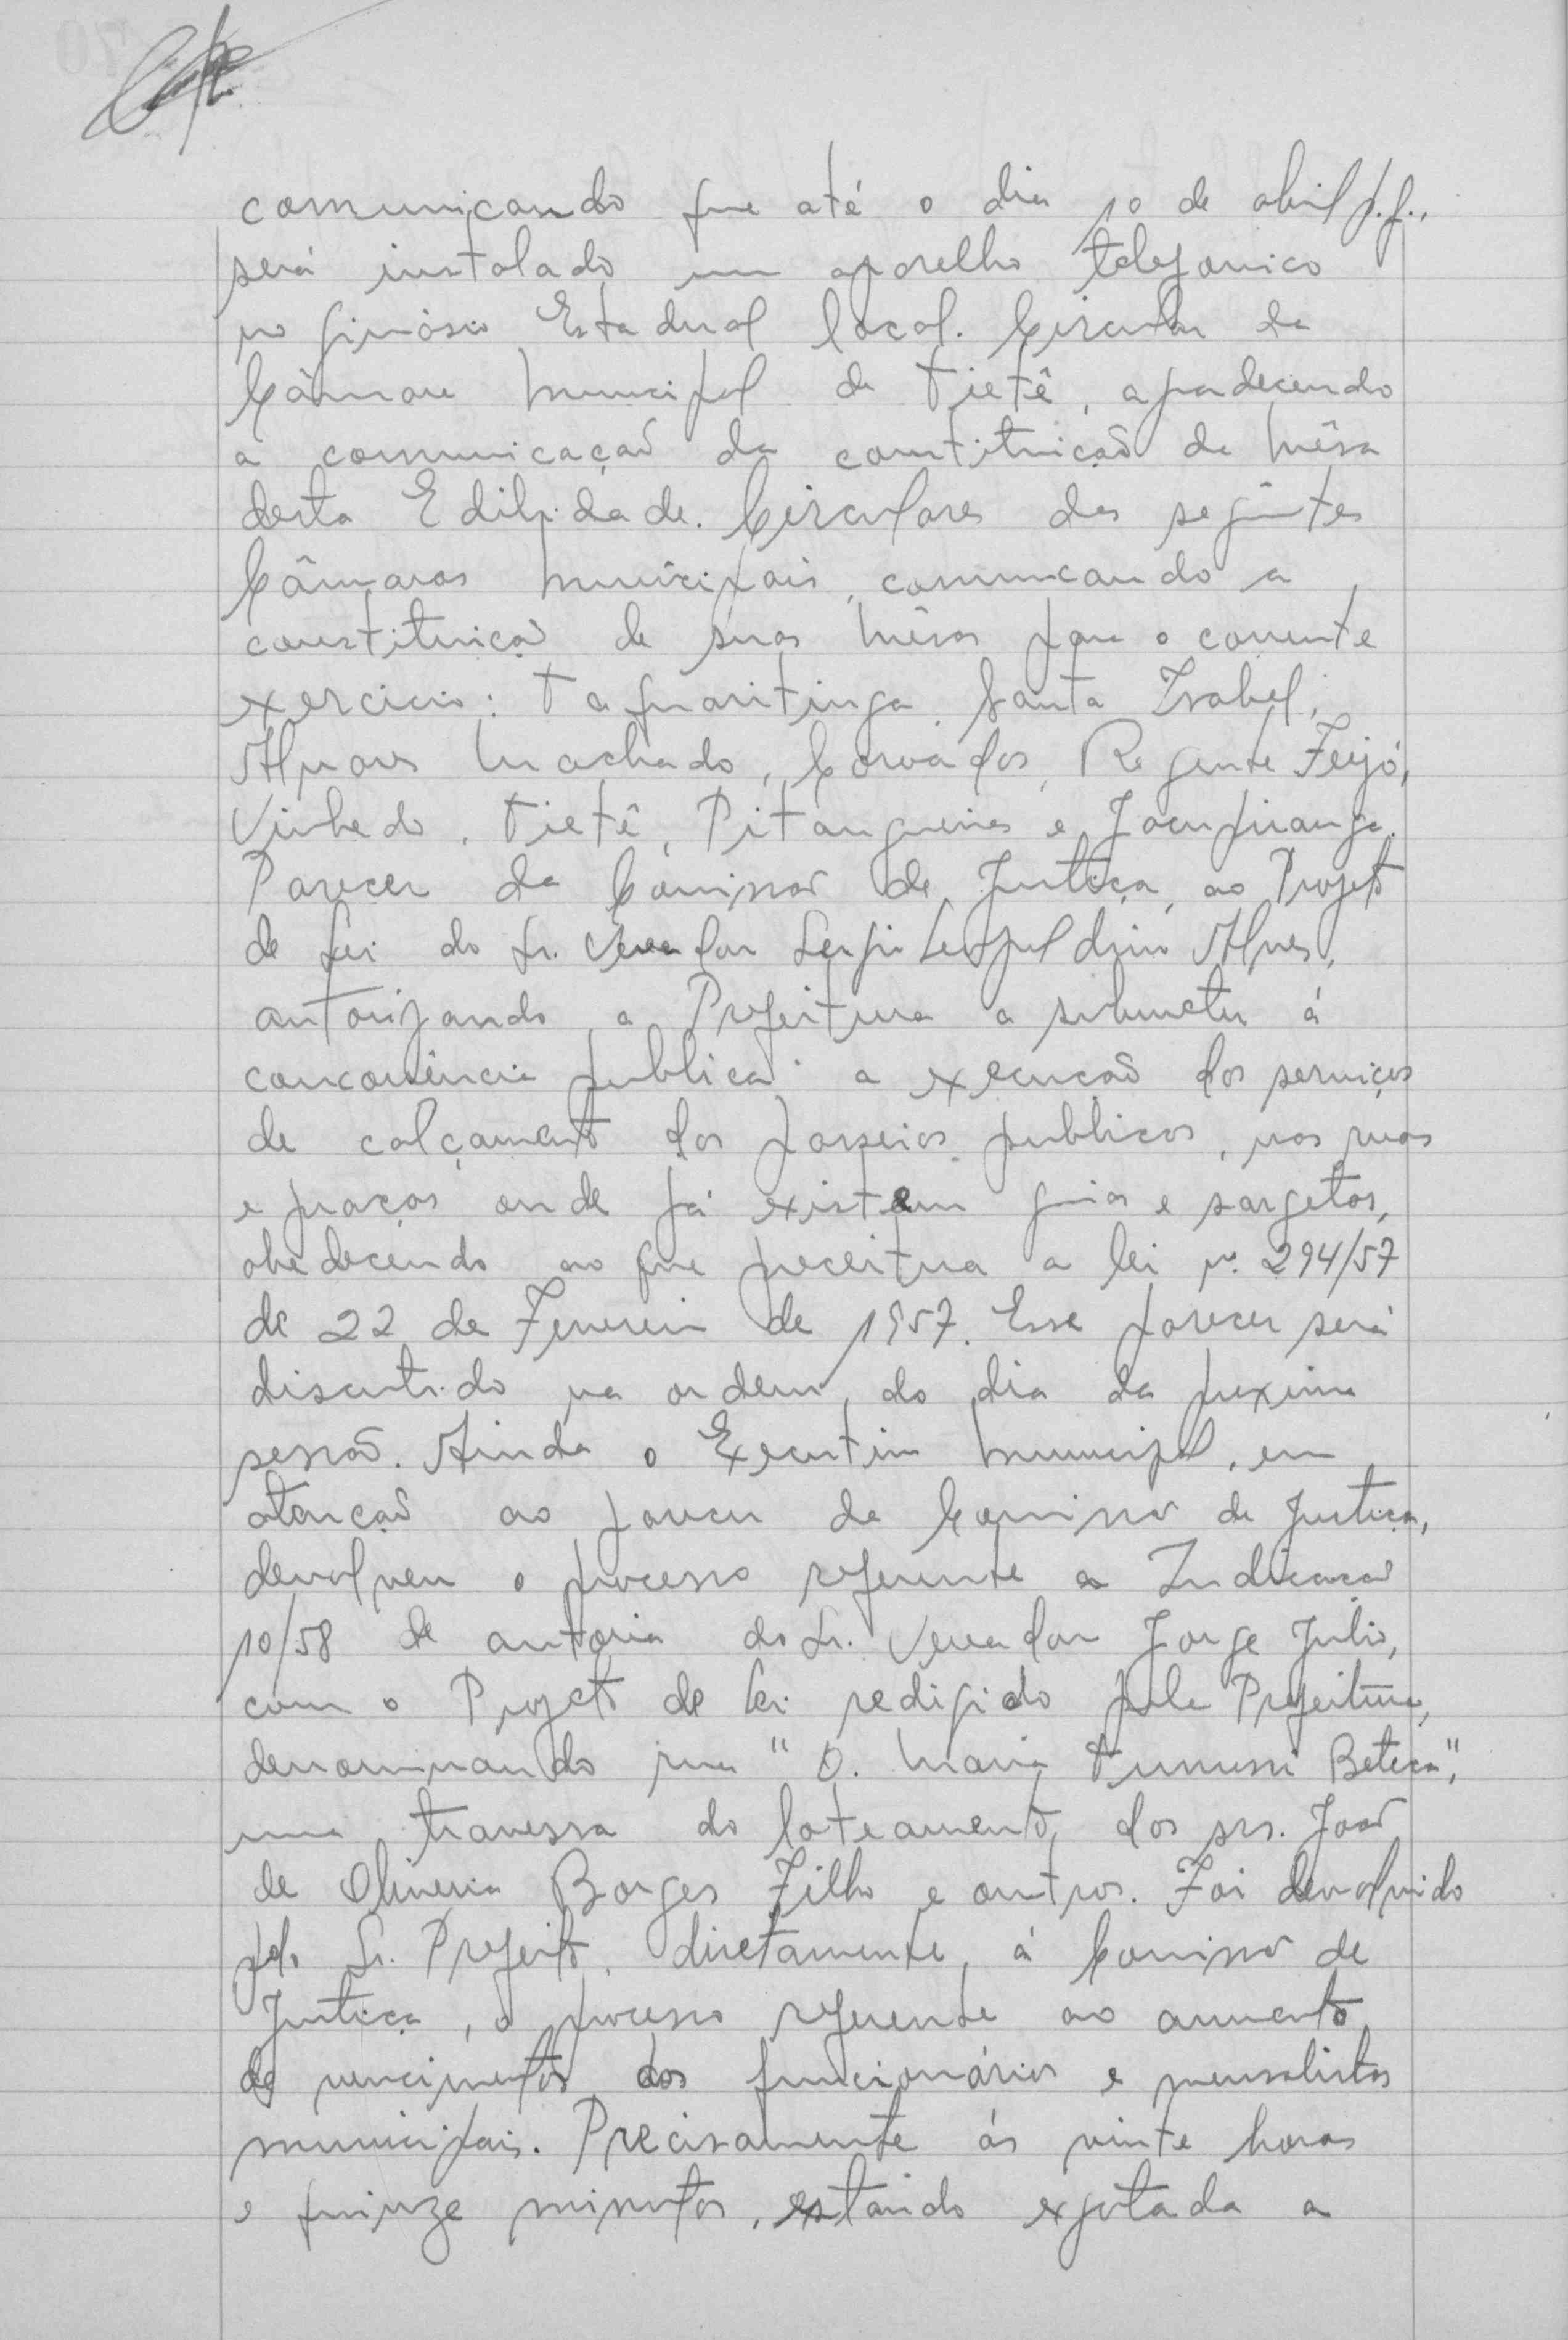 comunicando que até o dia 10 de abril p.f.,
será instalado um aparelho telefonico
no ginásio Estadual local. Circular da
Câmara Municipal de Tietê, agradecendo
a comunicação da constituição da Mêsa
desta Edilidade. Circulares das seguintes
Câmaras Municipais, comunicando a
constituição de suas Mêsas para o corrente
exercicio: Taquaritinga, Santa Izabel,
Alvares Machado, Coroados, Regente Feijó,
Vinhedo, Tietê, Pitangueiras e Jacupiranga.
Parecer da Comissão de Justiça, ao Projeto
de Lei do Sr. Vereador Sergio Leopoldino Alves,
autorizando a Prefeitura a submeter á
concorrência publica a execução dos serviços
de calçamento dos passeios publicos, nas ruas
e praças onde já existem guias e sargetas,
obedecendo ao que preceitua a lei nº 294/57
de 22 de Fevereiro de 1957. Esse parecer será
discutido na ordem do dia da proxima
sessão. Ainda o Executivo Municipal, em
atenção ao parecer da Comissão de Justiça,
devolveu o processo referente a Indicação
10/58 de autoria do Sr. Vereador Jorge Julio,
com o Projeto de Lei redigido pela Prefeitura,
denominando rua "D. Maria Betica",
uma travessa do loteamento dos srs. João
de Oliveira Borges Filho e outros. Foi devolvido
pelo Sr. Prefeito, diretamente, á Comissão de
Justiça, o processo referente ao aumento
de vencimentos dos funcionários e mensalistas
municipais. Precisamente ás vinte horas
e quinze minutos, estando exgotada a